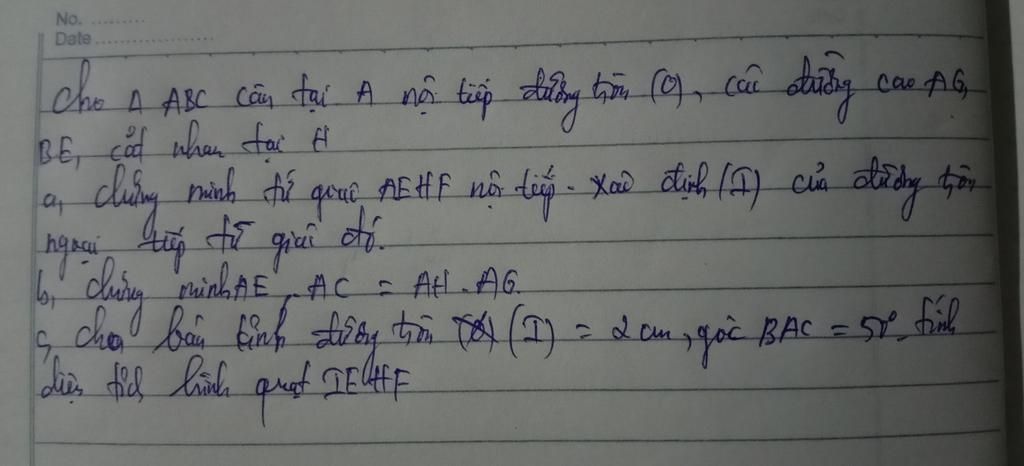 No. ..........
Date ......................
Cho Δ ABC cân tại A nội tiếp đường tròn (O), các đường cao AG,
BE, cắt nhau tại H
a, chứng minh tứ giác AEHF nội tiếp. xác định (I) của đường tròn
ngoại tiếp tứ giác đó.
b, chứng minh AE . AC = AH . AG.
c, cho bán kính đường tròn (I) = 2 cm, góc BAC = 50°. tính
diện tích hình quạt IEHF